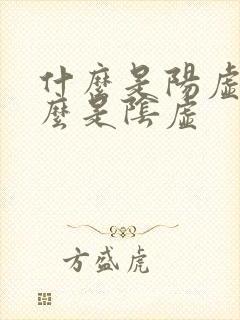 什麼是陽虛
麼是陰虛
方盛虎